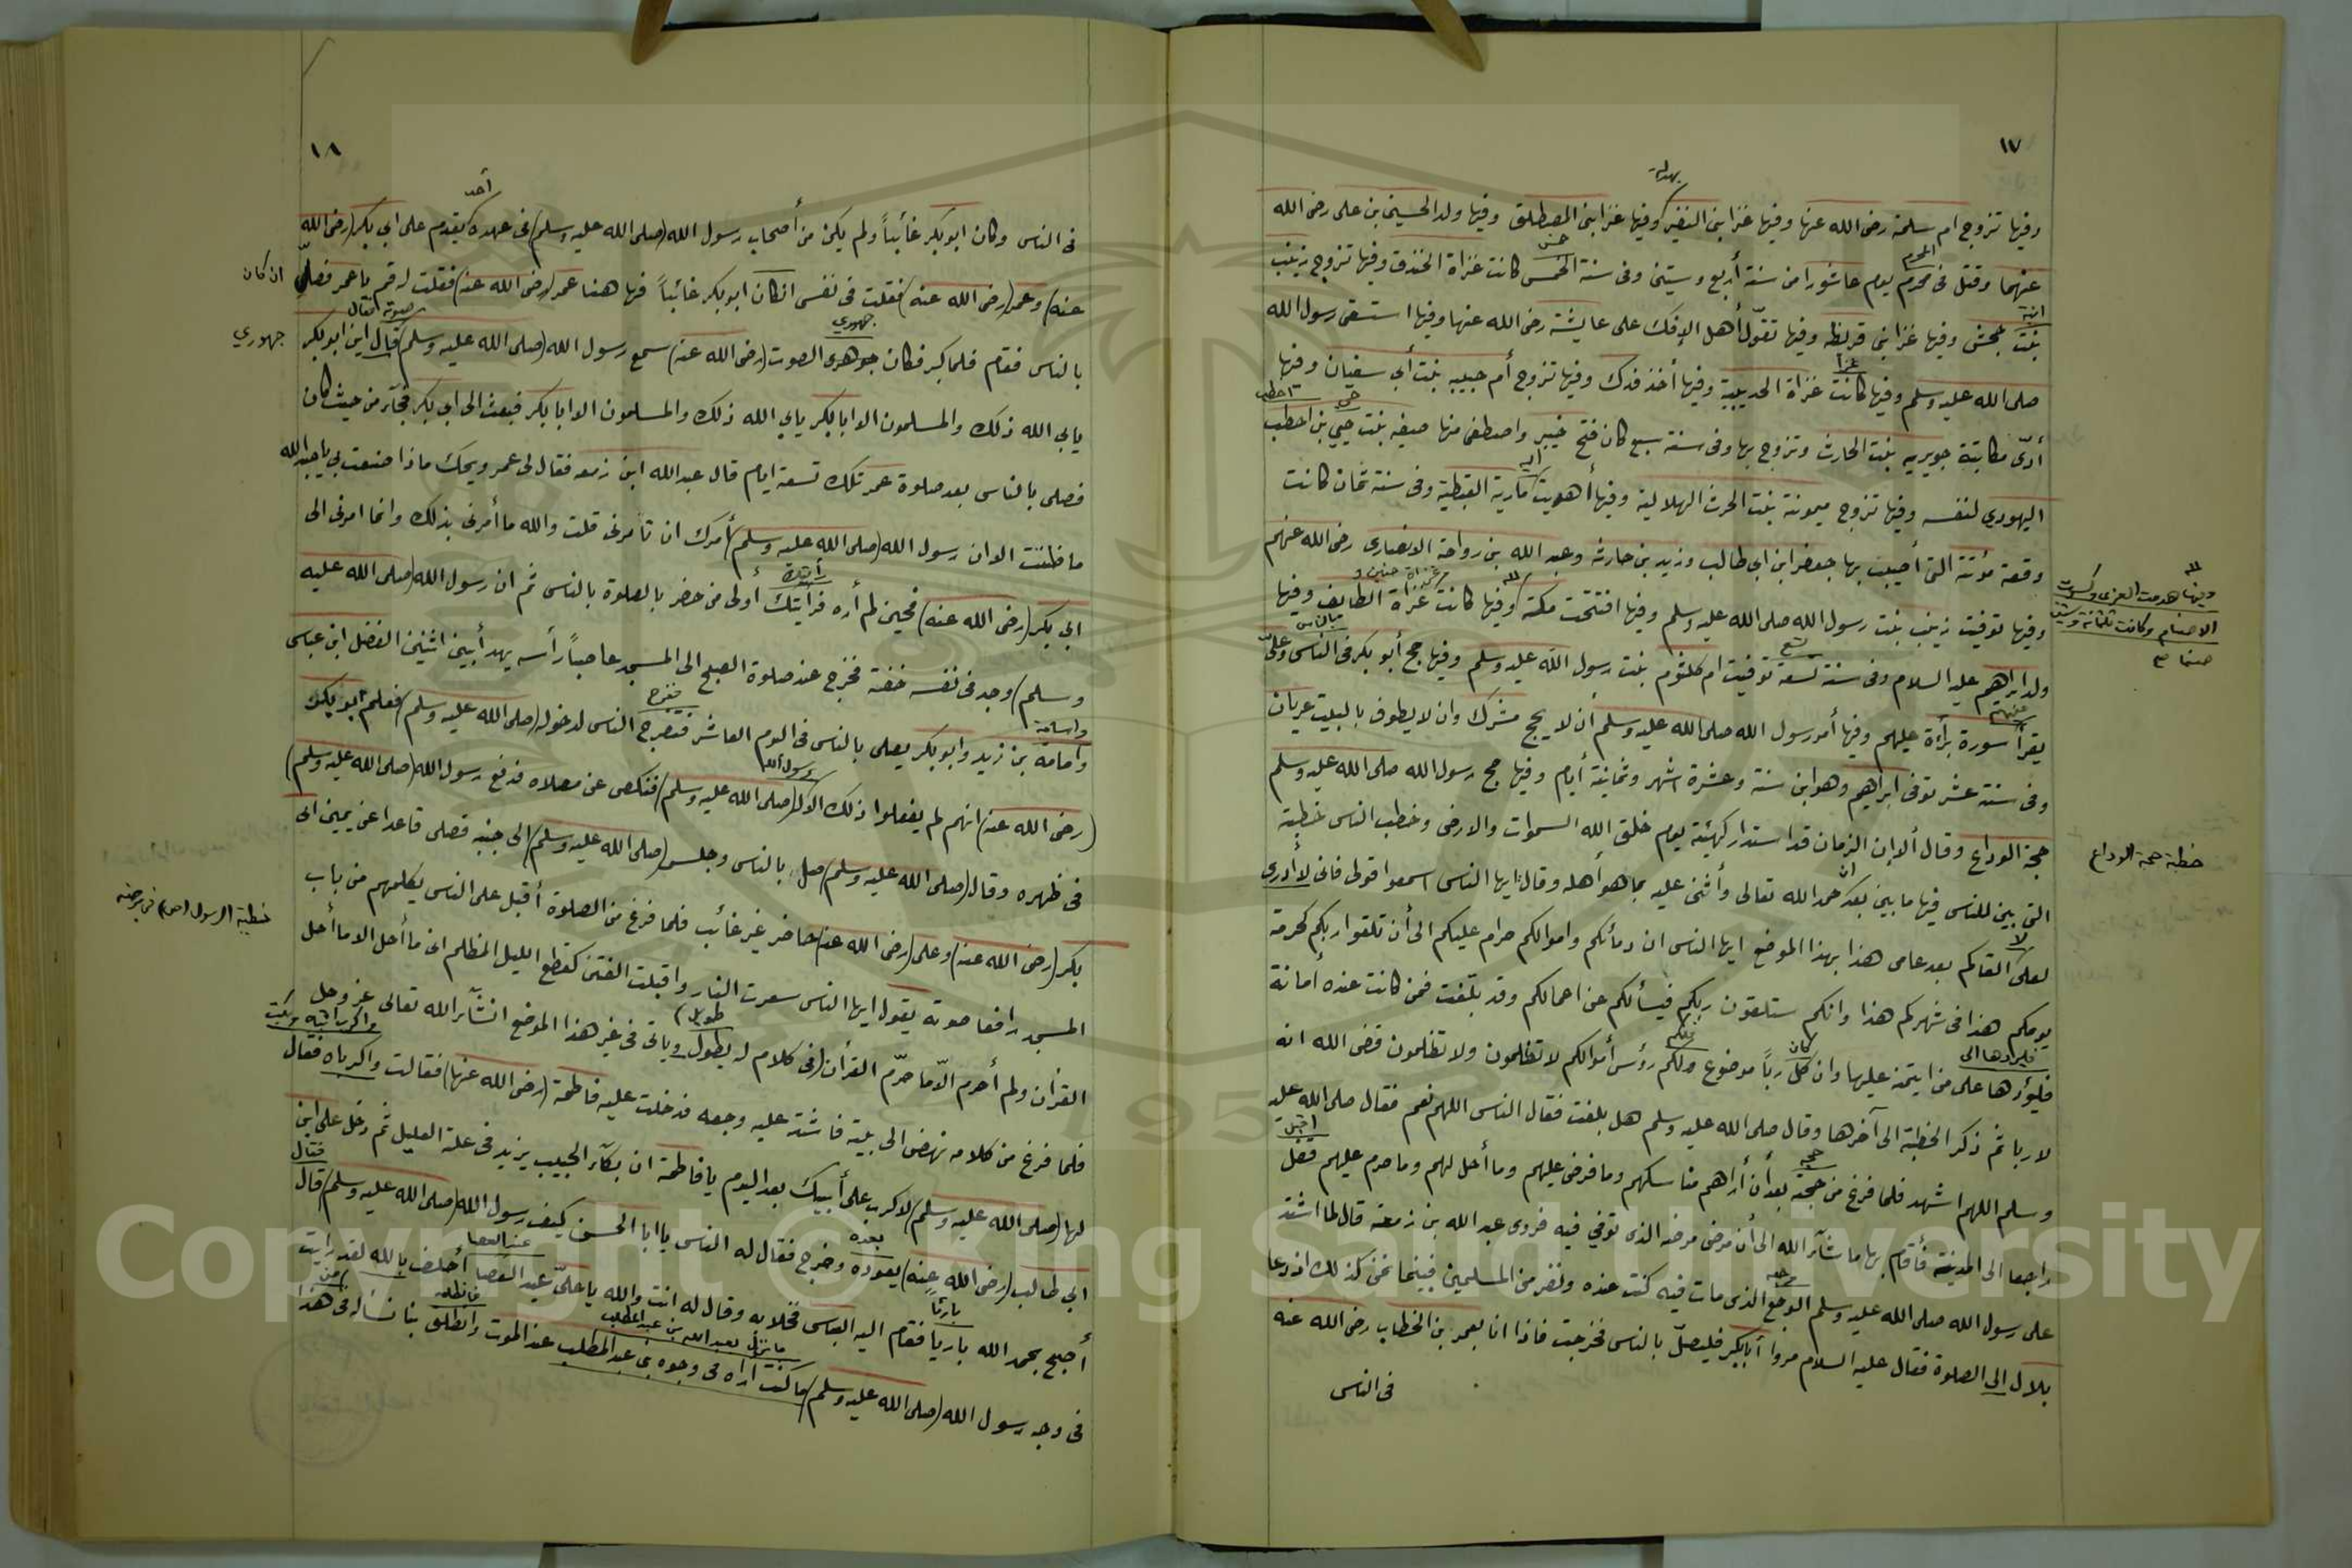 ١٧
بهدلية
وفيها تزوج ام سلمة رضى الله عنها وفيها غزا بنى النضير وفيها غزا بنى المصطلق وفيها ولد الحسين بن على رضى الله
المحرم
خمس
عنهما وقتل فى محرم يوم عاشورا من سنة أربع وستين وفى سنة الخمس كانت غزاة الخندق وفيها تزوج زينب
ابنة
بنت جحش وفيها غزا بنى قريظه وفيها تقوّل أهل الإفك على عايشة رضى الله عنها وفيها استسقى رسول الله
غزا
صلى الله عليه وسلم وفيها كانت غزاة الحديبية وفيها أخذ فدك وفيها تزوج أم حبيبه بنت أبي سفيان وفيها
حي
اخطب
أدّى مكاتبة جويريه بنت الحارث وتزوج بها وفى سنة سبع كان فتح خيبر واصطفى منها صفيه بنت حيي بن اخطب
اليه
اليهودي لنفسه وفيها تزوج ميمونة بنت الحرث الهلالية وفيها أهديت مارية القبطية وفى سنة ثمان كانت
وقعة مؤتة التى أصيب بها جعفر ابن ابى طالب وزيد بن حارثه وعبد الله بن رواحة الانصارى رضى الله عنهم
غزاة حنين و
وفيها توفيت زينب بنت رسول الله صلى الله عليه وسلم وفيها افتتحت مكة وفيها كانت غزاة الطائف وفيها
وفيها هدمت العزى وكسرت
الاصنام وكانت ثلثمائة وستين
صنما صح
تسع
بالناس
ولد ابراهيم عليه السلام وفى سنة تسعة توفيت ام كلثوم بنت رسول الله عليه وسلم وفيها حج أبو بكر فى الناس وعلىّ
عليهم
يقرأ سورة برأءة عليهم وفيها أمر رسول الله صلى الله عليه وسلم أن لا يحج مشرك وان لا يطوف بالبيت عريان
وفى سنة عشر توفى ابراهيم وهو ابن سنة وعشرة اشهر وثمانية أيام وفيها حج رسول الله صلى الله عليه وسلم
حجة الوداع وقال ألا إن الزمان قد استدار كهيئة يوم خلق الله السموات والارض وخطب الناس خطبة
خطبة حجة الوداع
ان
التى بين للناس فيها ما بين بعد حمد الله تعالى وأثنى عليه بما هو أهله وقال ايها الناس اسمعوا قولى فانى لا أدرى
لا
لعلى القاكم بعد عامى هذا بهذا الموضع ايها الناس ان دمائكم واموالكم حرام عليكم الى أن تلقوا ربكم كحرمة
يومكم هذا فى شهركم هذا وانكم ستلقون ربكم فيسألكم عن اعمالكم وقد بلغت فمن كانت عنده أمانة
فليردها الى
كان
فليؤدها على من ايتمنه عليها وان كل رباً موضوع ولكم رؤس أموالكم لا تظلمون ولا تظلمون قضى الله انه
لا ربا ثم ذكر الخطبة الى آخرها وقال صلى الله عليه وسلم هل بلغت فقال الناس اللهم نعم فقال صلى الله عليه
حجه
وسلم اللهم اشهد فلما فرغ من حجته بعد أن أراهم مناسكهم وما فرض عليهم وما أحل لهم وما حرم عليهم قفل
راجعا الى المدينة فأقام بها ما شآء الله الى أن مرض مرضه الذى توفي فيه فروى عبد الله بن زمعة قال لما اشتد
على رسول الله صلى الله عليه وسلم الوجع الذى مات فيه كنت عنده ونفر من المسلمين فبينما نحن كذلك اذ دعا
بلال الى الصلوة فقال عليه السلام مروا أبا بكر فليصلّ بالناس فخرجت فاذا انا بعمر بن الخطاب رضى الله عنه
فى الناس
١٨
أحد
فى الناس وكان ابو بكر غائباً ولم يكن من أصحاب رسول الله (صلى الله عليه وسلم) فى عهده يتقدم على ابى بكر (رضى الله
عنه) وعمر (رضى الله عنه) فقلت فى نفسى انكان ابو بكر غائباً فها هنا عمر (رضى الله عنه) فقلت له قم يا عمر فصلّ
ان كان
جهوري
صوته فقال
بالناس فقام فلما كبر فكان جوهرى الصوت (رضى الله عنه) سمع رسول الله (صلى الله عليه وسلم) قال اين ابو بكر
جهوري
يابى الله ذلك والمسلمون الا ابا بكر يابي الله ذلك والمسلمون الا ابا بكر فبعث الى ابى بكر فجآء من حيث كان
فصلى بالناس بعد صلوة عمر تلك تسعة ايام قال عبد الله ابن زمعه فقال لى عمر ويحك ماذا صنعت بي يا عبد الله
ما ظننت الا ان رسول الله (صلى الله عليه وسلم) أمرك ان تأمرنى قلت والله ما أمرنى بذلك وانما امرنى الى
رأيتك
ابى بكر (رضى الله عنه) فحين لم أره فرأيتك أولى من حضر بالصلوة بالناس ثم ان رسول الله (صلى الله عليه
وسلم) وجد فى نفسه خفة فخرج عند صلوة الصبح الى المسجد عاصباً رأسه يهدأ بين اثنين الفضل ابن عباس
واسامة
وأمامة بن زيد وابو بكر يصلى بالناس فى اليوم العاشر فتفرج الناس لدخوله (صلى الله عليه وسلم) فعلم أبو بكر
رسول الله
(رضى الله عنه) انهم لم يفعلوا ذلك الا لـ (صلى الله عليه وسلم) فنكص عن مصلاه فدفع رسول الله (صلى الله عليه وسلم)
فى ظهره وقال (صلى الله عليه وسلم) صل بالناس وجلس (صلى الله عليه وسلم) الى جنبه فصلى قاعدا عن يمين ابى
بكر (رضى الله عنه) وعلى (رضى الله عنه) حاضر غير غائب فلما فرغ من الصلوة أقبل على الناس يكلمهم من باب
خطبة الرسول (ص) فى مرضه
المسجد رافعا صوته يقول ايها الناس سعرت النار واقبلت الفتن كقطع الليل المظلم انى ما أحل الا ما أحل
طويل)
القرأن ولم أحرم الّا ما حرّم القرأن (فى كلام له يطول وياتى فى غير هذا الموضع انشآء الله تعالى عز وجل
فلما فرغ من كلامه نهض الى بيته فاشتد عليه وجعه فدخلت عليه فاطمة (رضى الله عنها) فقالت واكرباه فقال
لها (صلى الله عليه وسلم) لا كرب على أبيك بعد اليوم يا فاطمة ان بكآء الحبيب يزيد فى علة العليل ثم دخل على ابن
فقال
ابي طالب (رضى الله عنه) يعوده وخرج فقال له الناس يا ابا الحسن كيف رسول الله (صلى الله عليه وسلم) قال
بارئاً
عبد العصا
أصبح بحمد الله باريا فقام اليه العباس فخلا به وقال له انت والله يا علىّ عبد العصا أحلف بالله لقد رايت
فى وجه رسول الله (صلى الله عليه وسلم) ما كنت اراه فى وجوه بنى عبد المطلب عند الموت وانطلق بنا نساله فى هذا
Copyright © King Saud University